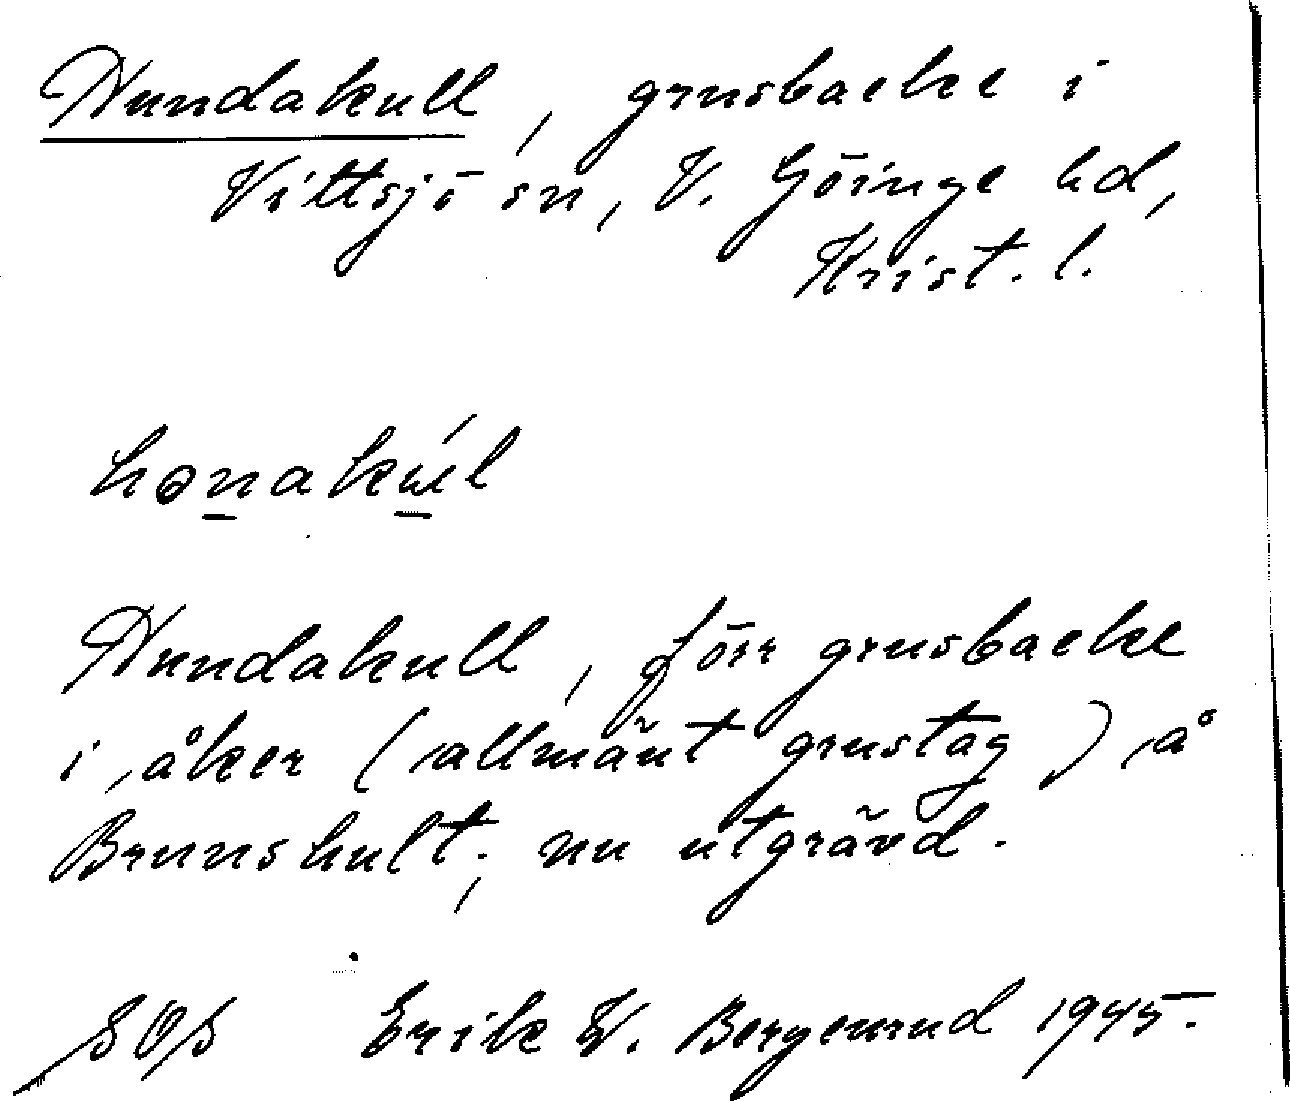 Hundakull, grusbacke i
Vittsjö sn, V. Göinge hd,
Krist. l.
hɵnakúl
Hundakull, förr grusbacke
i åker (allmänt grustag) å
Brunshult; nu utgrävd.
Erik W. Bergeurud 1945.